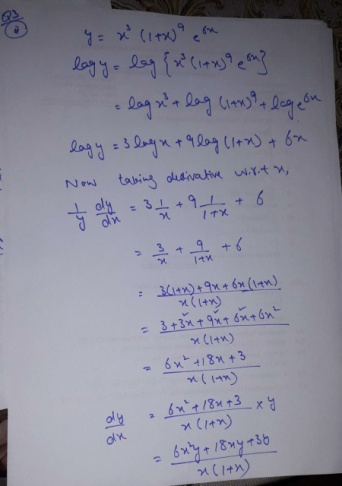 Q3
(i)
y = x³ (1+x)⁹ e⁶ˣ
log y = log { x³ (1+x)⁹ e⁶ˣ }
= log x³ + log (1+x)⁹ + log e⁶ˣ
log y = 3 log x + 9 log (1+x) + 6x
Now taking derivative w.r.t x,
1/y dy/dx = 3 1/x + 9 1/(1+x) + 6
= 3/x + 9/(1+x) + 6
= (3(1+x) + 9x + 6x(1+x)) / (x(1+x))
= (3 + 3x + 9x + 6x + 6x²) / (x(1+x))
= (6x² + 18x + 3) / (x(1+x))
dy/dx = (6x² + 18x + 3) / (x(1+x)) × y
= (6x²y + 18xy + 3y) / (x(1+x))